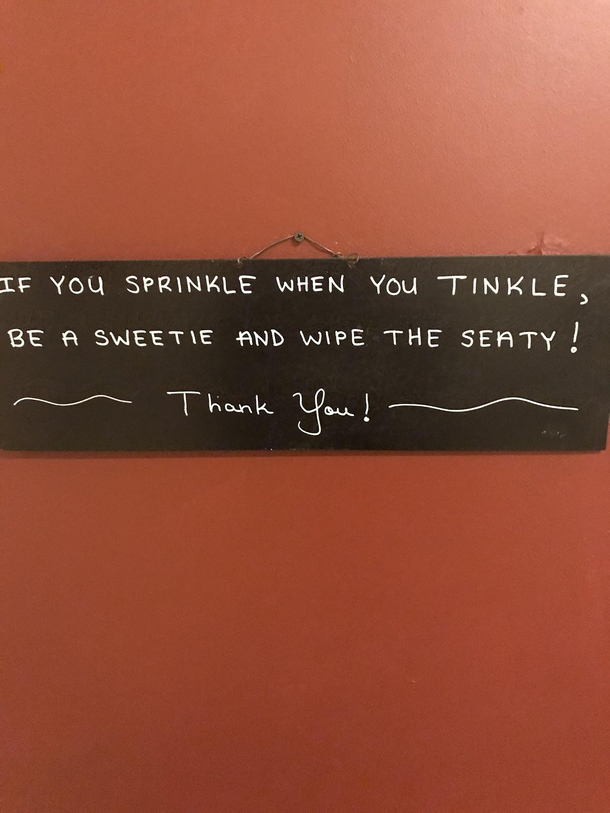 IF YOU SPRINKLE WHEN YOU TINKLE,
BE A SWEETIE AND WIPE THE SEATY!
Thank You!